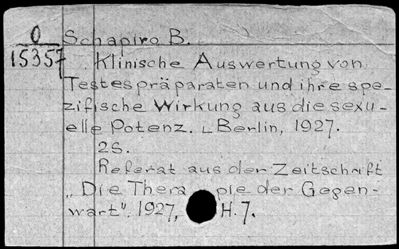 O Schapiro B.
15357 Klinische Auswertung von
Testespräparaten und ihre spe-
zifische Wirkung aus die sexu-
elle Potenz. Berlin, 1927.
2S.
Referat aus der Zeitschrift
„Die Therapie der Gegen-
wart". 1927, H. 7.